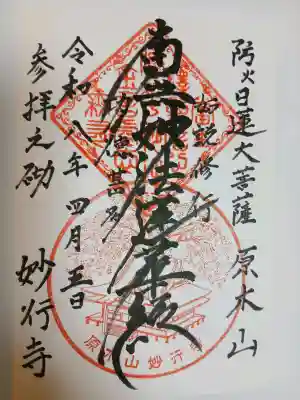 防火日蓮大菩薩 原木山
如説修行
南無妙法蓮華経
功徳甚多
令和八年 四月五日
参拝之砌 妙行寺
原木山妙行寺